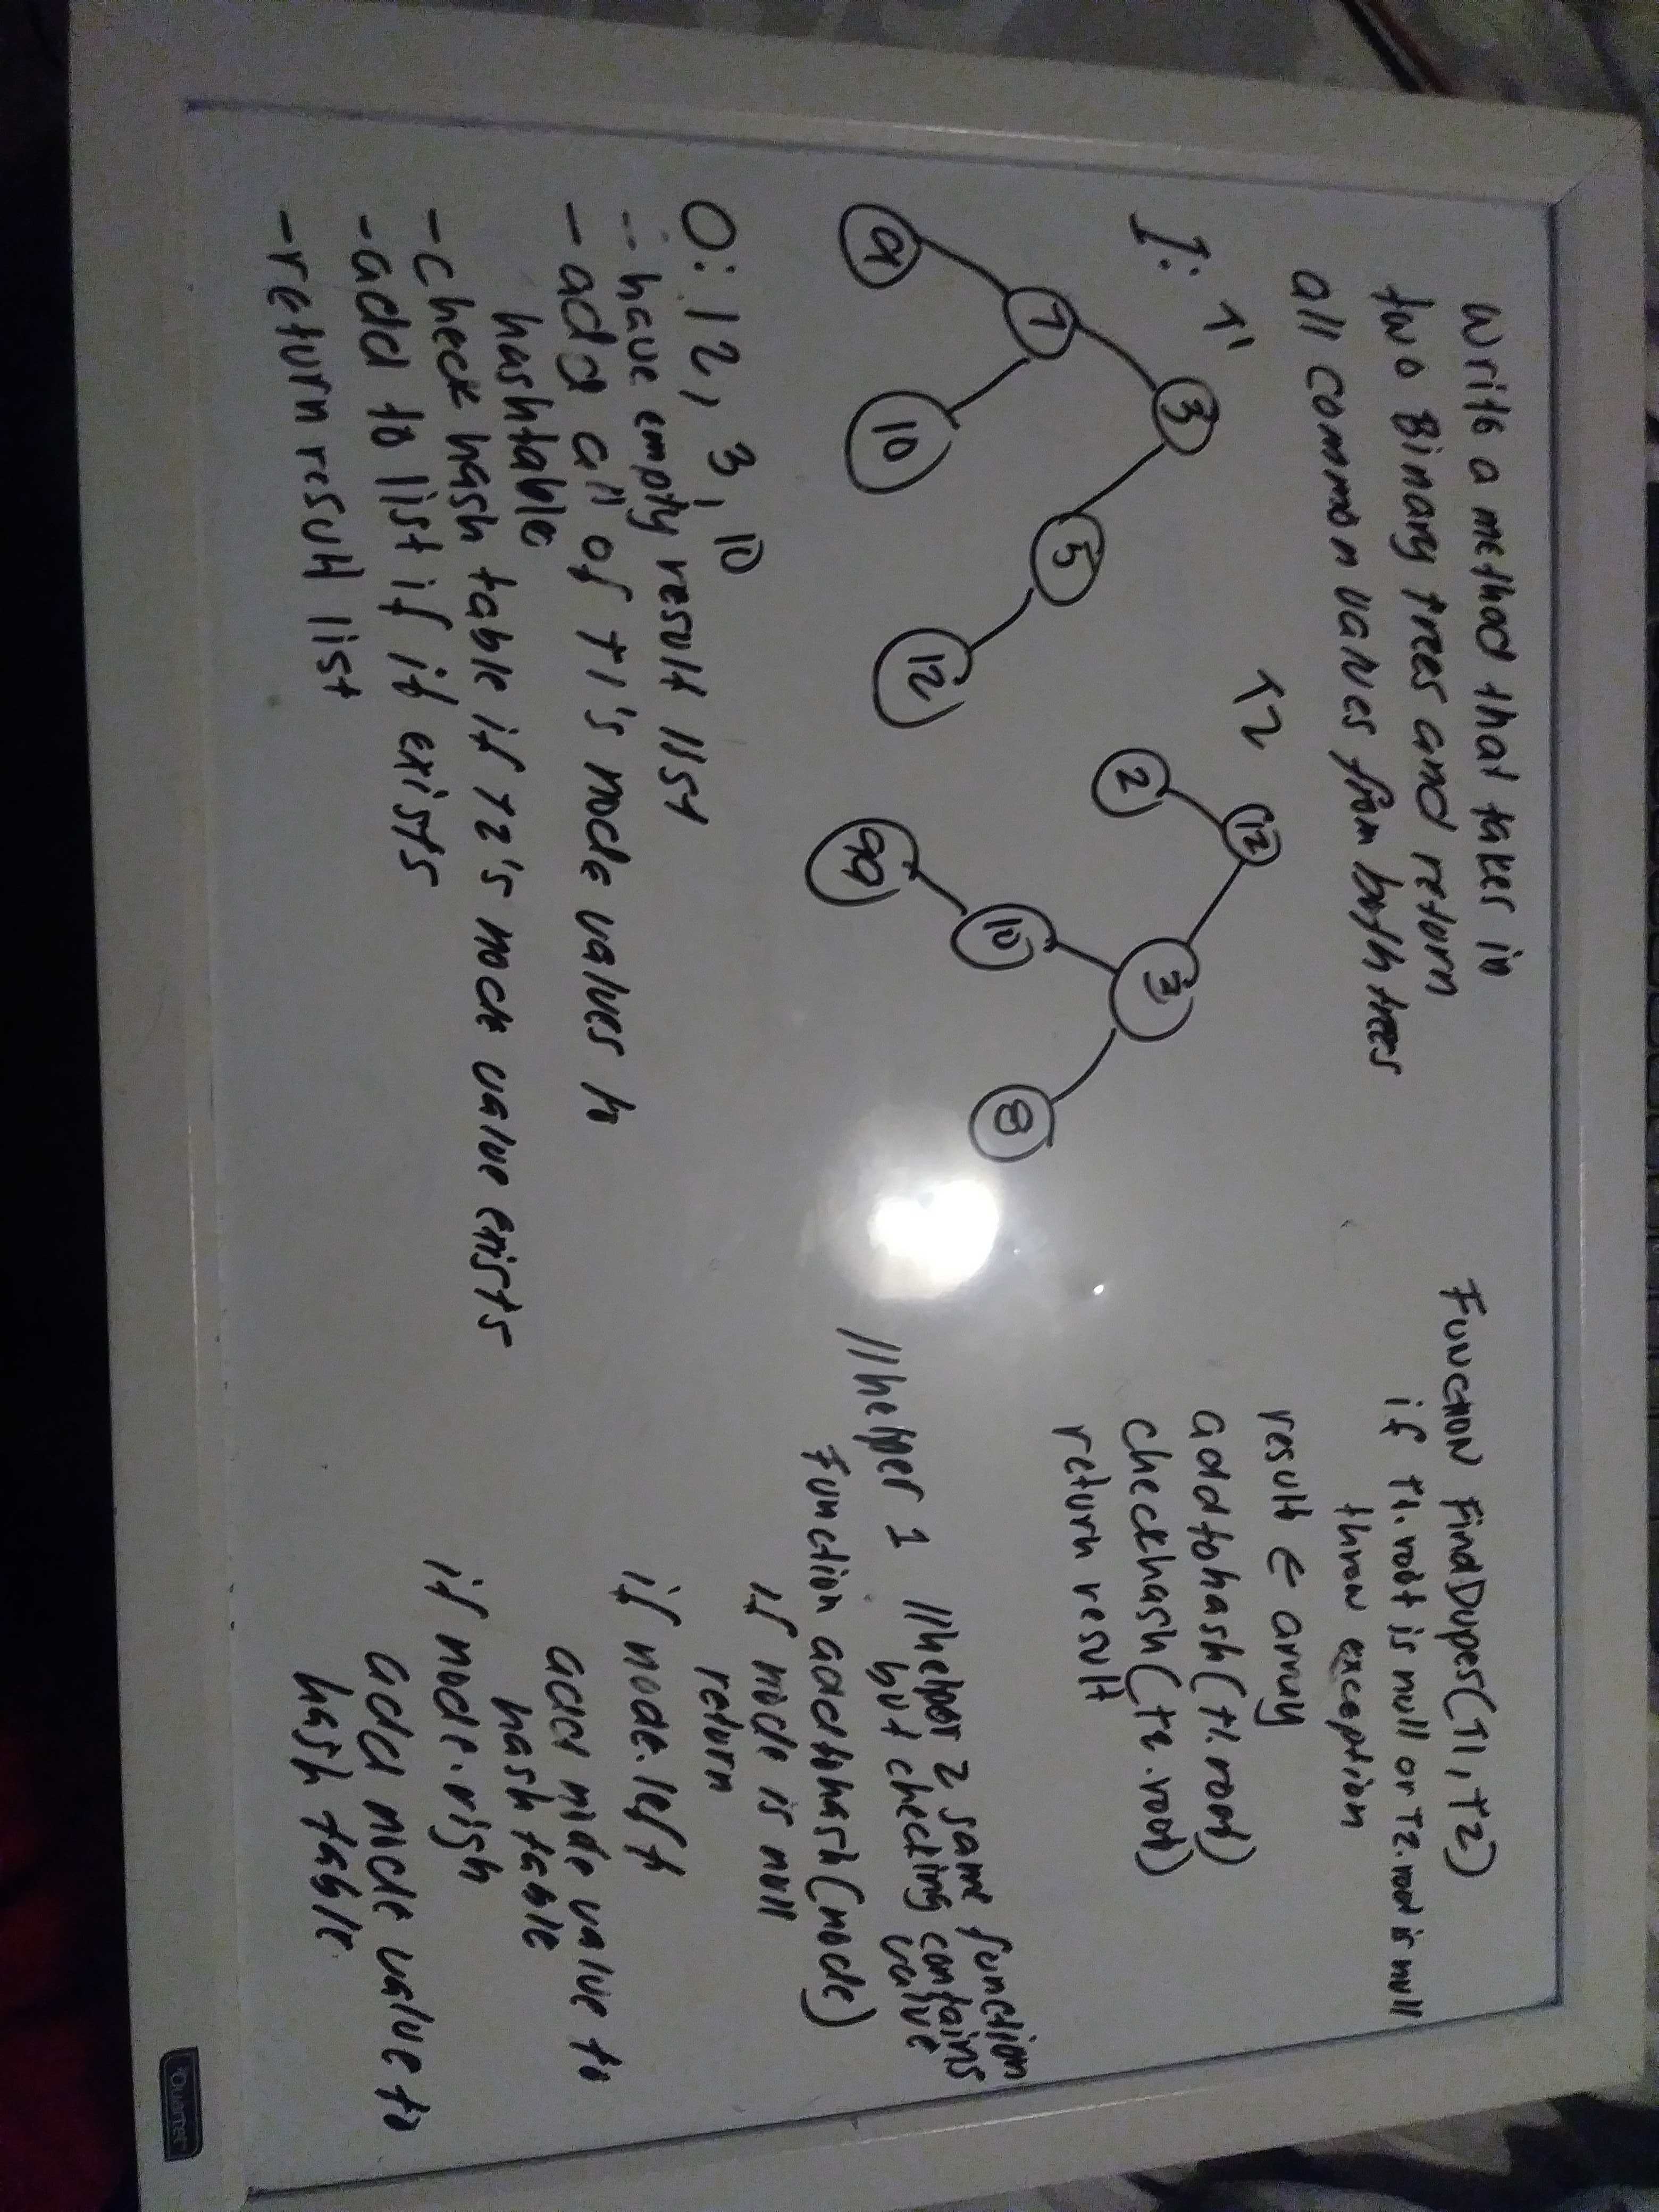 Write a method that takes in
two Binary trees and return
all common values from both trees
I: T1
3
7
5
9
10
12
T2
12
2
3
10
8
99
O: 12, 3, 10
- have empty result list
- add all of T1's node values to
hashtable
- check hash table if T2's node value exists
- add to list if it exists
- return result list
Function FindDupes(T1, T2)
if T1.root is null or T2.root is null
throw exception
result ← array
addtohash(t1.root)
checkhash(t2.root)
return result
//helper 1
//helper 2 same function
but checking contains
value
Function addtohash(node)
if node is null
return
if node.left
add node value to
hash table
if node.righ
add node value to
hash table
Quartet